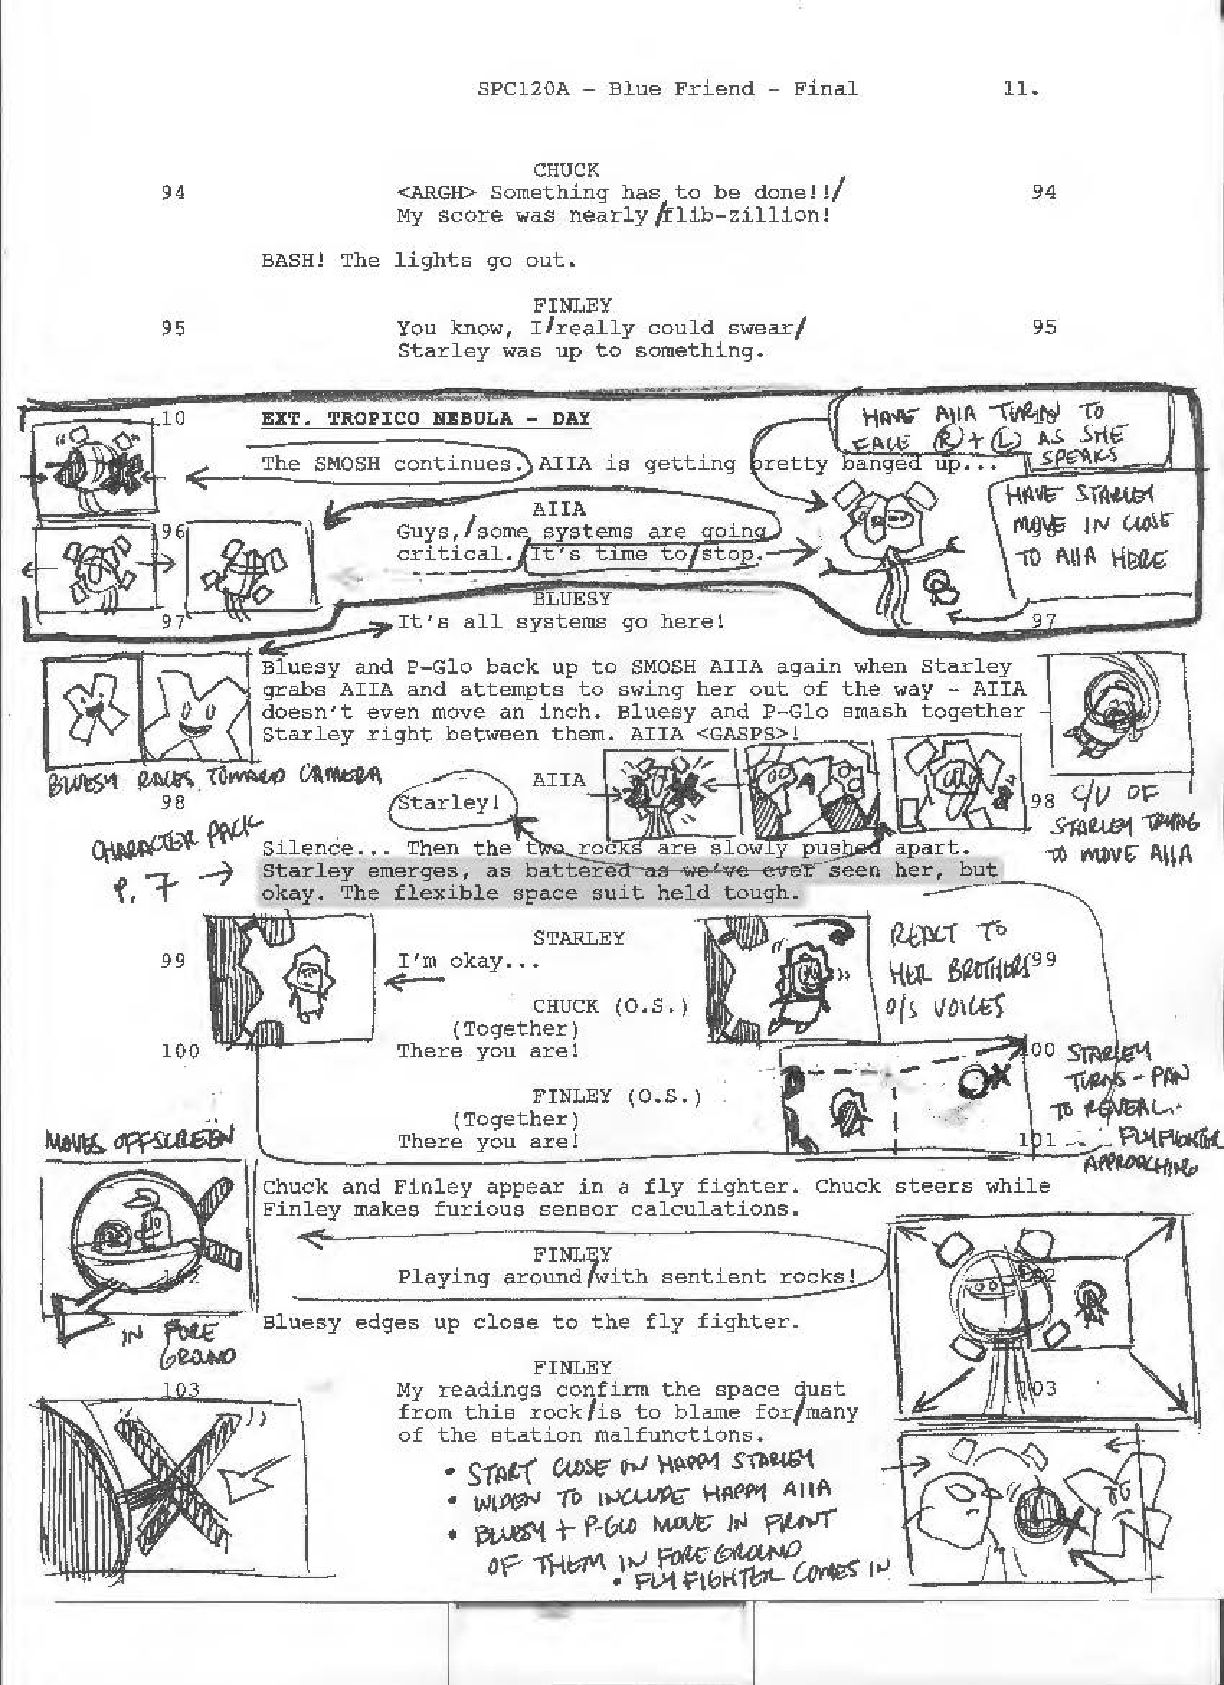 SPC120A - Blue Friend - Final 11.
CHUCK
94 <ARGH> Something has to be done!!/ 94
My score was nearly/flib-zillion!
BASH! The lights go out.
FINLEY
95 You know, I/really could swear/ 95
Starley was up to something.
10 EXT. TROPICO NEBULA - DAY
HAVE AIIA TURN TO
FACE (R) + (L) AS SHE
SPEAKS
The SMOSH continues. AIIA is getting pretty banged up...
HAVE STARLEY
MOVE IN CLOSE
TO AIIA HERE
AIIA
96 Guys,/some systems are going
critical./It's time to/stop.
BLUESY
97 It's all systems go here! 97
Bluesy and P-Glo back up to SMOSH AIIA again when Starley
grabs AIIA and attempts to swing her out of the way - AIIA
doesn't even move an inch. Bluesy and P-Glo smash together -
Starley right between them. AIIA <GASPS>!
BLUESY RACES TOWARD CAMERA
AIIA
98 Starley! 98
C/U OF
STARLEY TRYING
TO MOVE AIIA
CHARACTER PACK
P. 7
Silence... Then the two rocks are slowly pushed apart.
Starley emerges, as battered as we've ever seen her, but
okay. The flexible space suit held tough.
STARLEY
99 I'm okay... 99
REACT TO
HER BROTHERS
O/S VOICES
CHUCK (O.S.)
(Together)
100 There you are! 100
STARLEY
TURNS - PAN
TO REVEAL
FLYFIGHTER
APPROACHING
FINLEY (O.S.)
(Together)
There you are! 101
MOVES OFFSCREEN
Chuck and Finley appear in a fly fighter. Chuck steers while
Finley makes furious sensor calculations.
FINLEY
Playing around/with sentient rocks!
Bluesy edges up close to the fly fighter.
IN FORE
GROUND
FINLEY
103 My readings confirm the space dust 103
from this rock/is to blame for/many
of the station malfunctions.
• START CLOSE ON HAPPY STARLEY
• WIDEN TO INCLUDE HAPPY AIIA
• BLUESY + P-GLO MOVE IN FRONT
OF THEM IN FOREGROUND
• FLYFIGHTER COMES IN